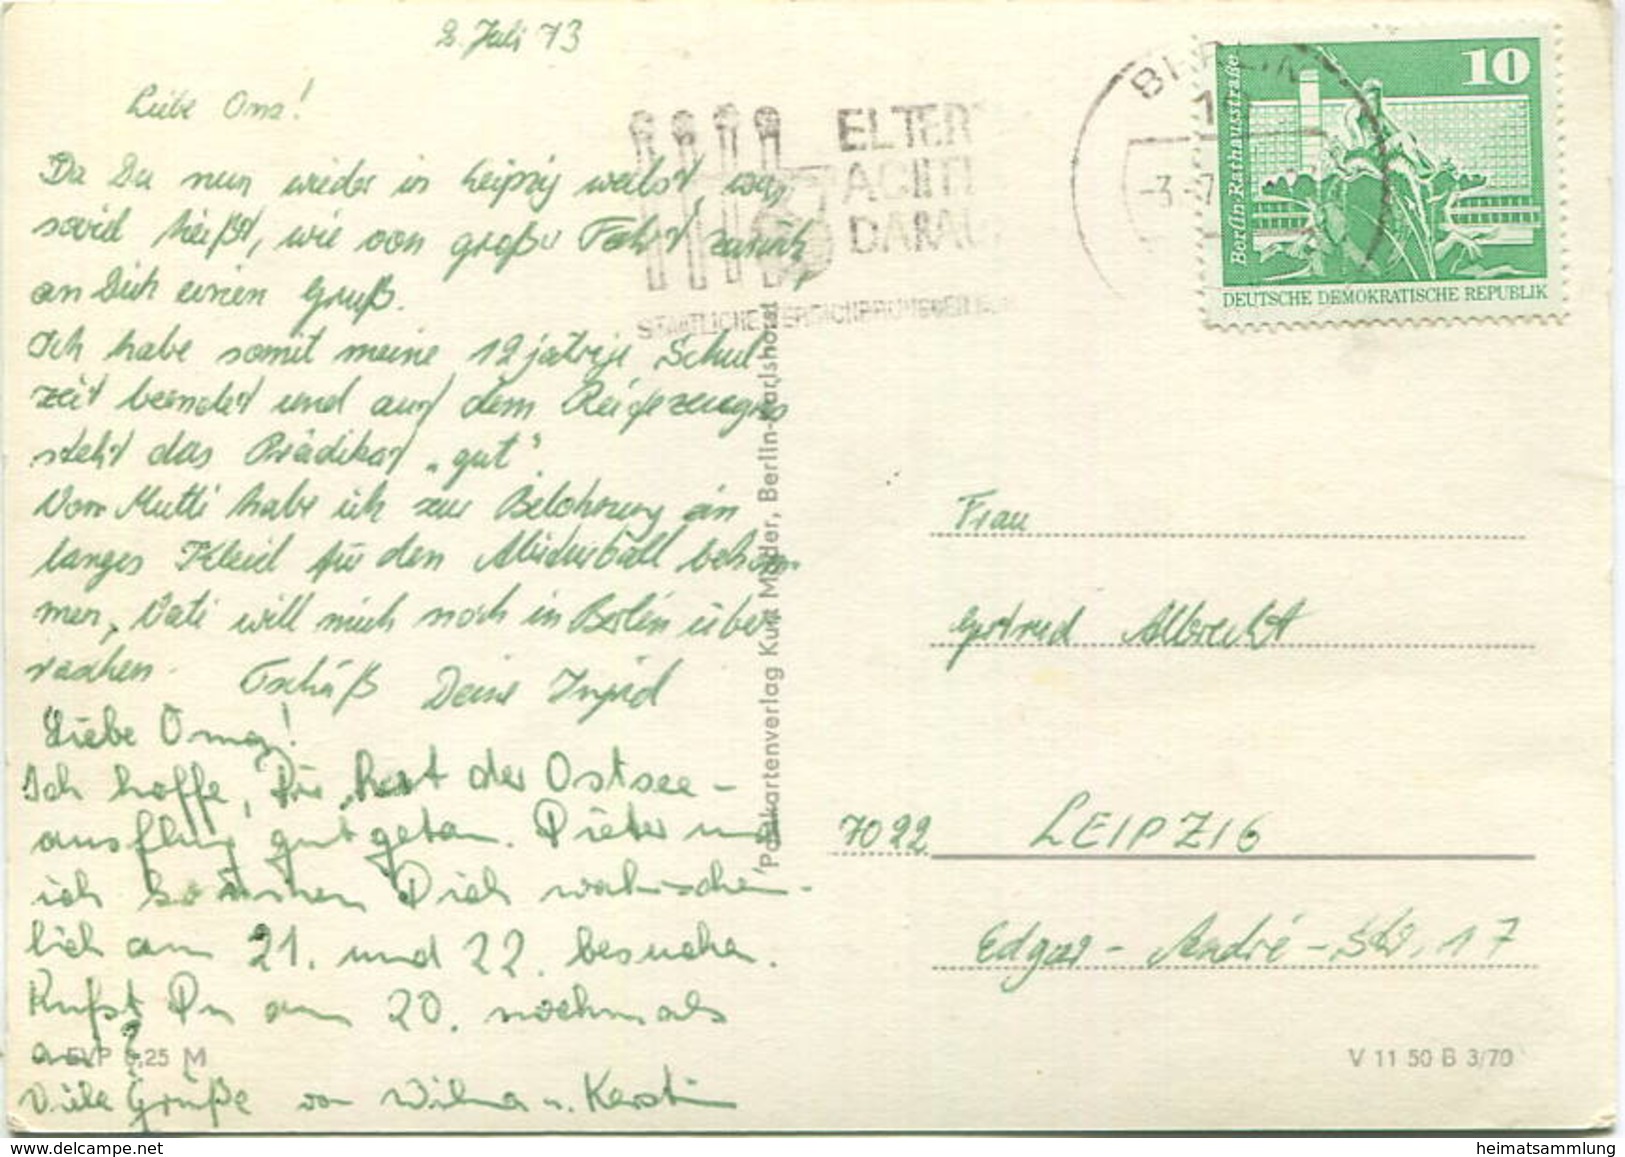 2. Juli 73
Liebe Oma!
Da Du nun wieder in Leipzig weilst was
soviel heißt, wie von großer Fahrt zurück,
an Dich einen Gruß.
Ich habe somit meine 12 jährige Schul
zeit beendet und auf dem Reifezeugnis
steht das Prädikat „gut".
Von Mutti habe ich zur Belohnung ein
langes Kleid für den Abiturball bekom-
men, Vati will mich noch in Berlin über
raschen. Tschüß Deine Ingrid
Liebe Oma!
Ich hoffe, Dir hat der Ostsee-
ausflug gut getan. Dieter und
ich kommen Dich wahrschein-
lich am 21. und 22. besuchen.
Rufst Du am 20. nochmals
an?
Viele Grüße von Wilma u. Kerstin
EVP 0,25 M
Postkartenverlag Kurt Mader, Berlin-Karlshorst
ELTERN
ACHTET
DARAUF
STAATLICHE VERSICHERUNG DER DDR
BERLIN
-3.-7
10
Berlin-Rathausstraße
DEUTSCHE DEMOKRATISCHE REPUBLIK
Frau
Gertrud Albrecht
7022 LEIPZIG
Edgar-André-Str. 17
V 11 50 B 3/70
heimatsammlung.de
heimatsammlung